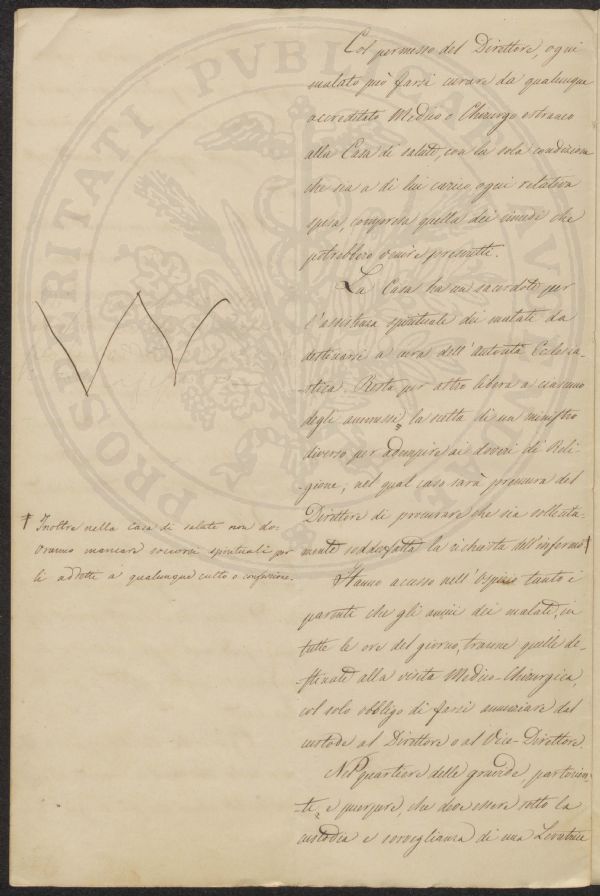 PROSPERITATI PVBLICAE
Col permesso del Direttore, ogni
malato può farsi curare da qualunque
accreditato Medico o Chirurgo estraneo
alla Casa di salute, con la sola condizione
che sia a di lui carico, ogni relativa
spesa, compresa quella dei rimedi che
potrebbero venire prescritti.
La Casa ha un sacerdote per
l'assistenza spirituale dei malati da
destinarsi a cura dell'Autorità Eclesia-
-stica. Resta per altro libera a ciascuno
degli ammessi, la scelta di un ministro
diverso per adempire ai doveri di Reli-
-gione; nel qual caso sarà premura del
Direttore di procurare che sia sollecita-
mente soddisfatta la richiesta dell'infermo †
† Inoltre nella Casa di salute non do-
vranno mancare soccorsi spirituali per
li addetti a qualunque culto o confessione.
Hanno accesso nell'Ospizio tanto i
parenti che gli amici dei malati, in
tutte le ore del giorno, tranne quelle de-
-stinate alla visita Medico-Chirurgica,
col solo obbligo di farsi annunciare dal
custode al Direttore o al Vice-Direttore.
Nel quartiere delle gravide, partorien-
-ti, e puerpere, che deve essere sotto la
custodia e sorveglianza di una Levatrice